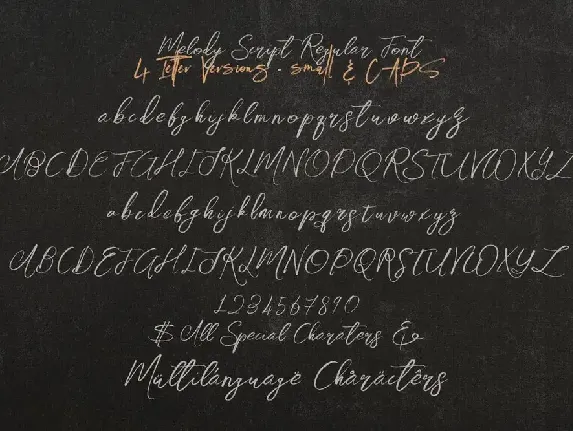 Melody Script Regular Font
4 Letter Versions . small & CAPS
abcdefghijklmnopqrstuvwxyz
ABCDEFGHIJKLMNOPQRSTUVWXYZ
abcdefghijklmnopqrstuvwxyz
ABCDEFGHIJKLMNOPQRSTUVWXYZ
1234567890
$ All Special Charaters &
Mültilängüagè Chäräctèrs